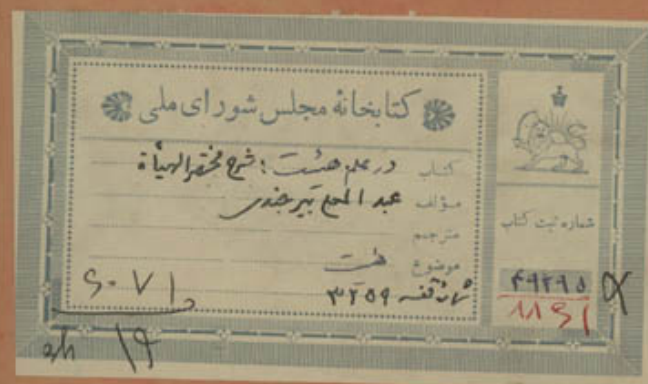 کتابخانه مجلس شورای ملی
کتاب در علم هیئت : شرح مختصر الهیأة
مؤلف عبد العلی بیرجندی
مترجم
موضوع هیئت
شماره قفسه ۳۲۵۹
شماره ثبت کتاب
۴۹۲۹۵
۱۱۶۱
۶۰۷۱
۱۶